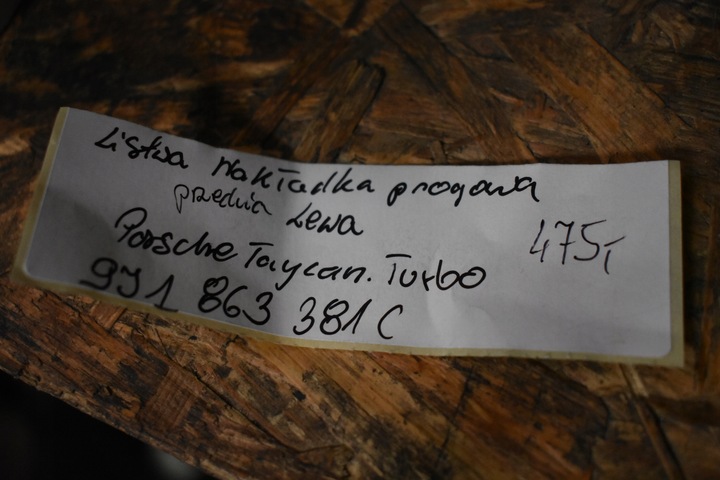 Listwa Nakładka progowa
przednia Lewa
Porsche Taycan. Turbo
9J1 863 381 C
475,-